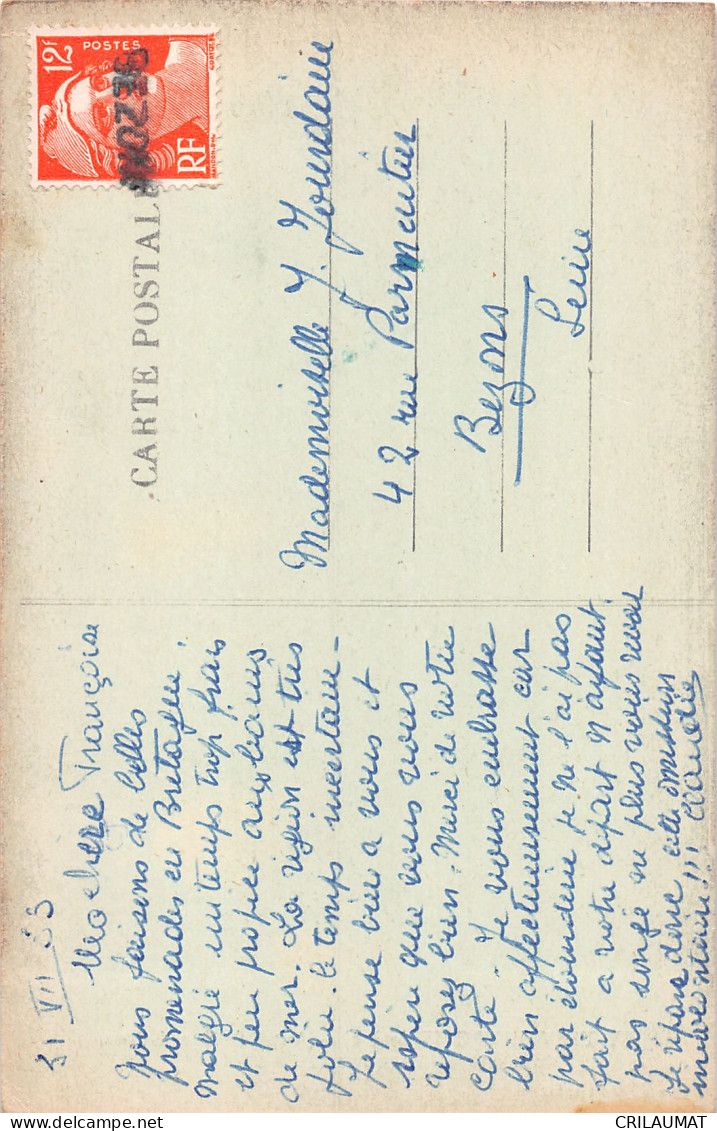 31 VII 53
Ma chère Françoise
Nous faisons de belles
promenades en Bretagne,
malgré un temps trop frais
et peu propice aux bains
de mer. La région est très
jolie. le temps incertain -
Je pense bien à vous et
espère que vous vous
reposez bien. Merci de votre
carte - Je vous embrasse
bien affectueusement car
par étourderie je ne l'ai pas
fait à votre départ n'ayant
pas songé ne plus vous revoir
Je répare donc cette omission
involontaire!!! Claudie
CARTE POSTALE
12f
POSTES
RF
Mademoiselle F. Jourdain
42 rue Parmentier
Bezons
Seine
CRILAUMAT